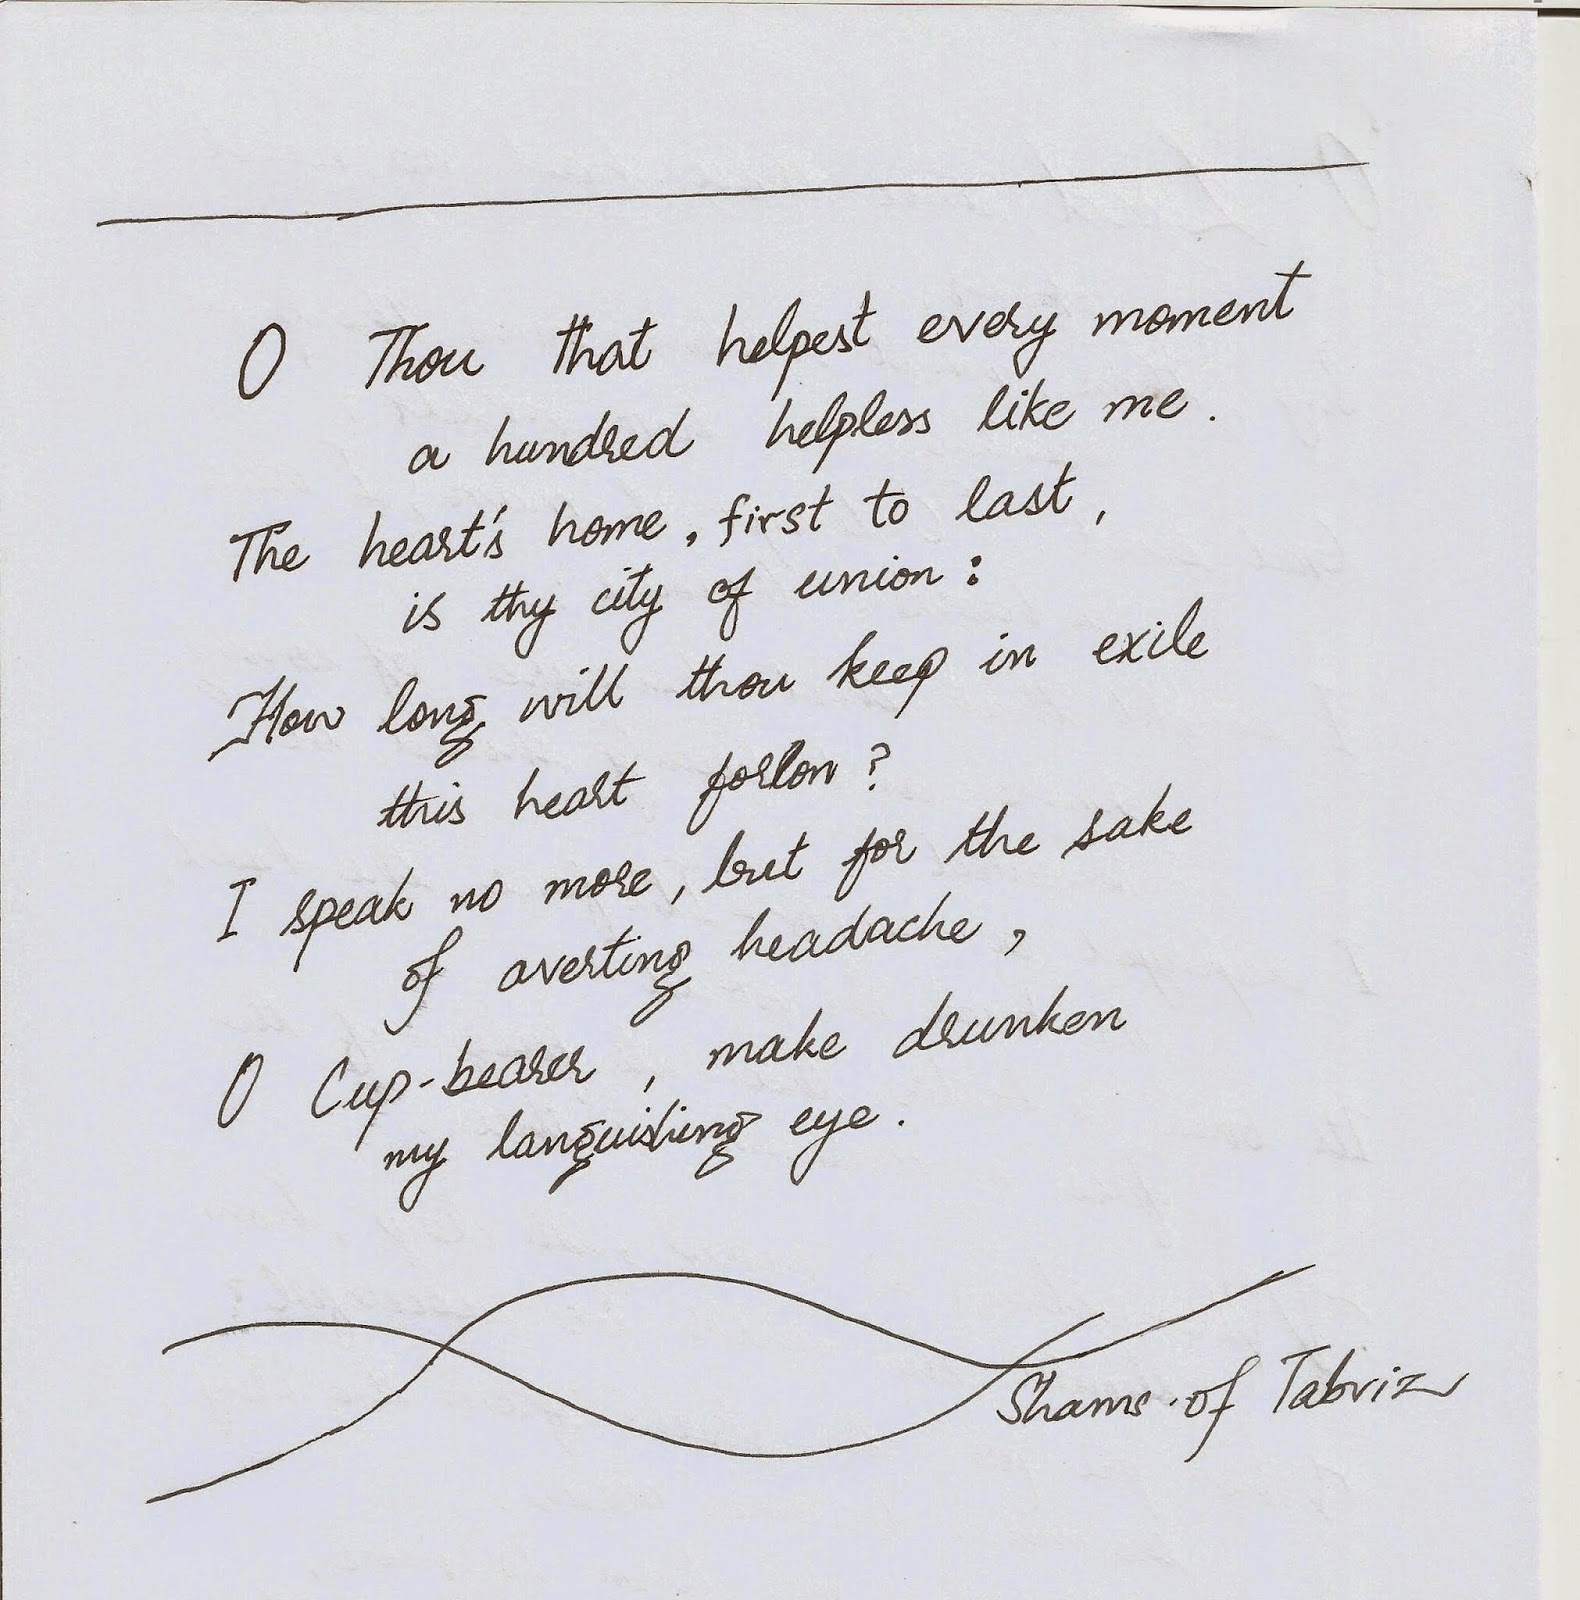 O Thou that helpest every moment
a hundred helpless like me.
The heart's home, first to last,
is thy city of union:
How long will thou keep in exile
this heart forlon?
I speak no more, but for the sake
of averting headache,
O Cup-bearer, make drunken
my languishing eye.
Shams-of Tabriz